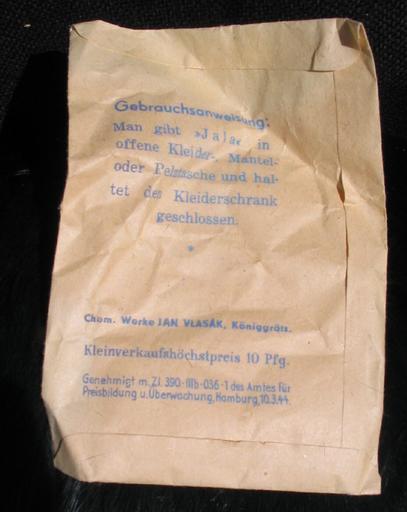 Gebrauchsanweisung:
Man gibt »Jala« in
offene Kleider-, Mantel-
oder Pelztasche und hal-
tet den Kleiderschrank
geschlossen.
*
Chem. Werke JAN VLASÁK, Königgrätz.
Kleinverkaufshöchstpreis 10 Pfg.
Genehmigt m. Zl. 390-IIIb-036-1 des Amtes für
Preisbildung u. Überwachung, Hamburg, 10.3.44.